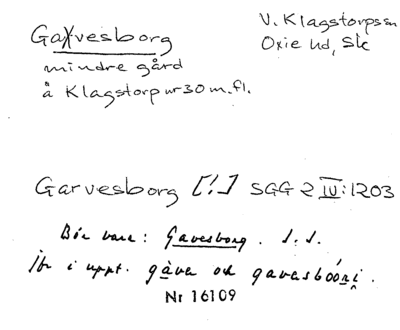 Gavesborg
V. Klagstorps sn
Oxie hd, Sk
mindre gård
å Klagstorp nr 30 m.fl.
Garvesborg [!] SGG 2 IV:1203
Bör vara: Gavesborg. J. S.
Jfr i uppt. gåva och gavasbóŏrj.
Nr 16109